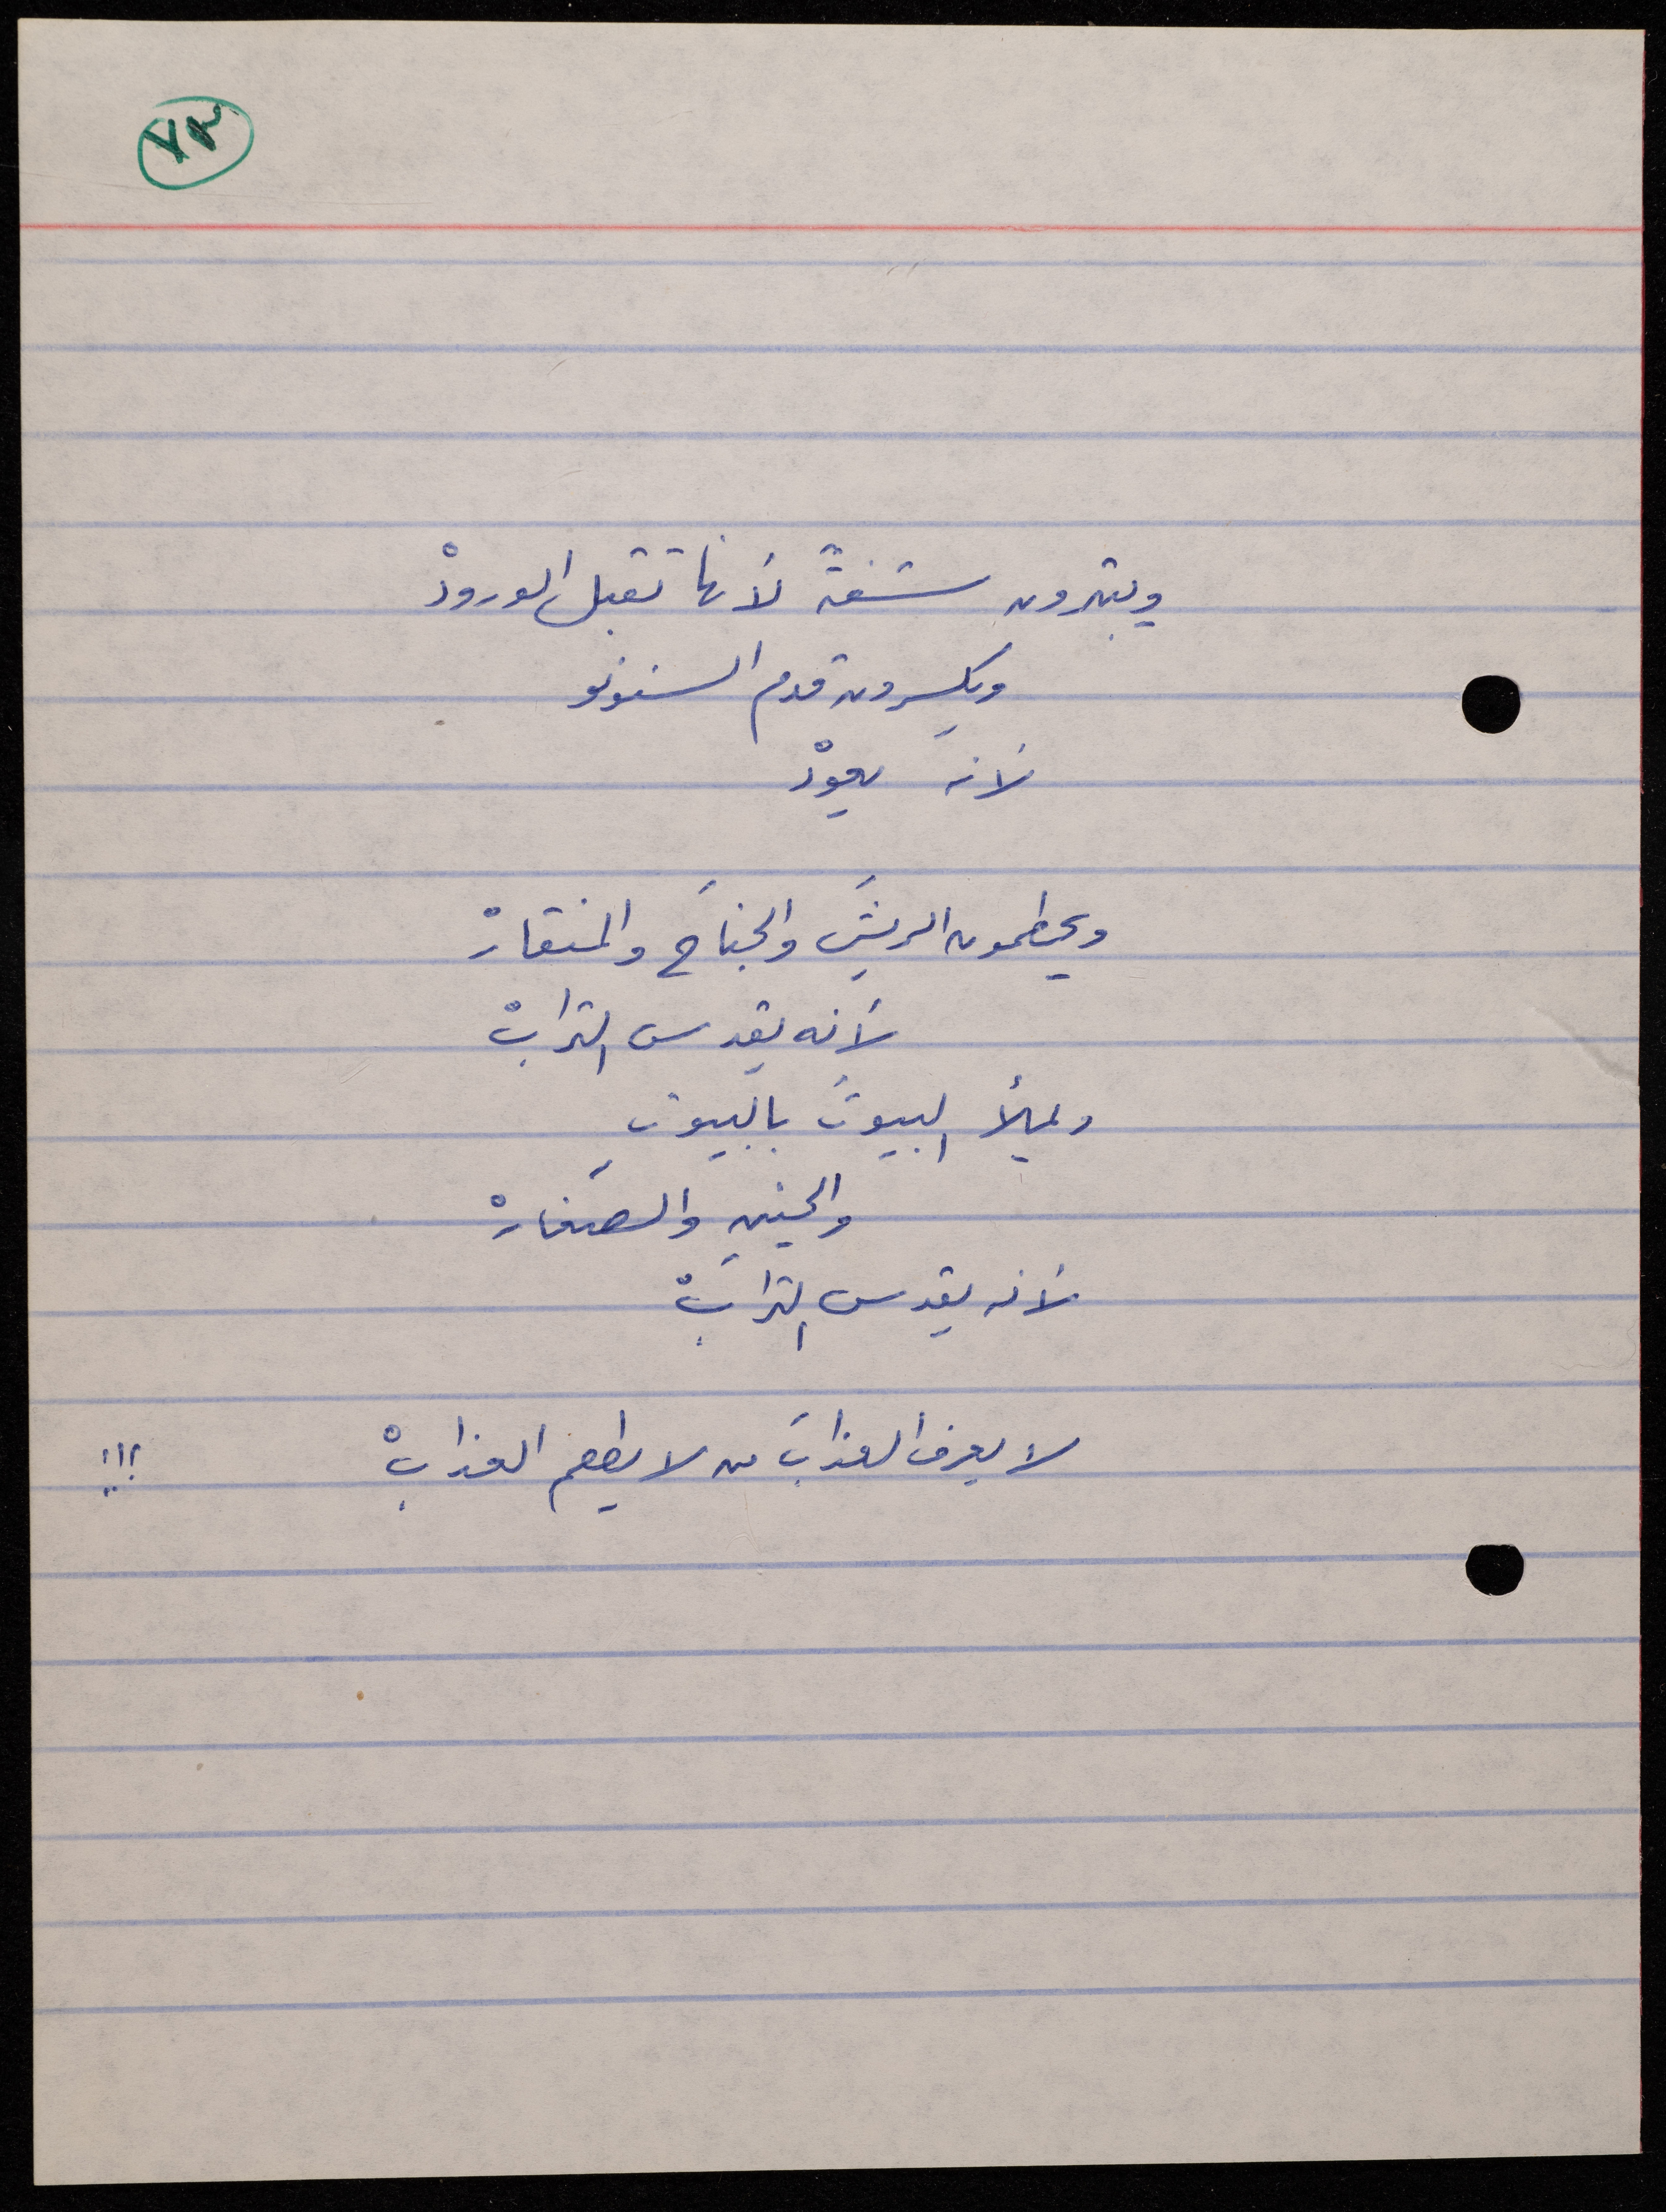 ٧٣
ويبترون شفةً لأنها تقبل الورودْ
ويكسرون قدم السنونو
لأنه يعودْ
ويحطمون الريشَ والجناحَ والمنقارْ
لأنه يقدس الترابْ
ويملأ البيوتَ بالبيوتِ
والحنينِ والصغارْ
لأنه يقدس الترابْ
لا يعرف العذابَ من لا يطعم العذابْ !!؛